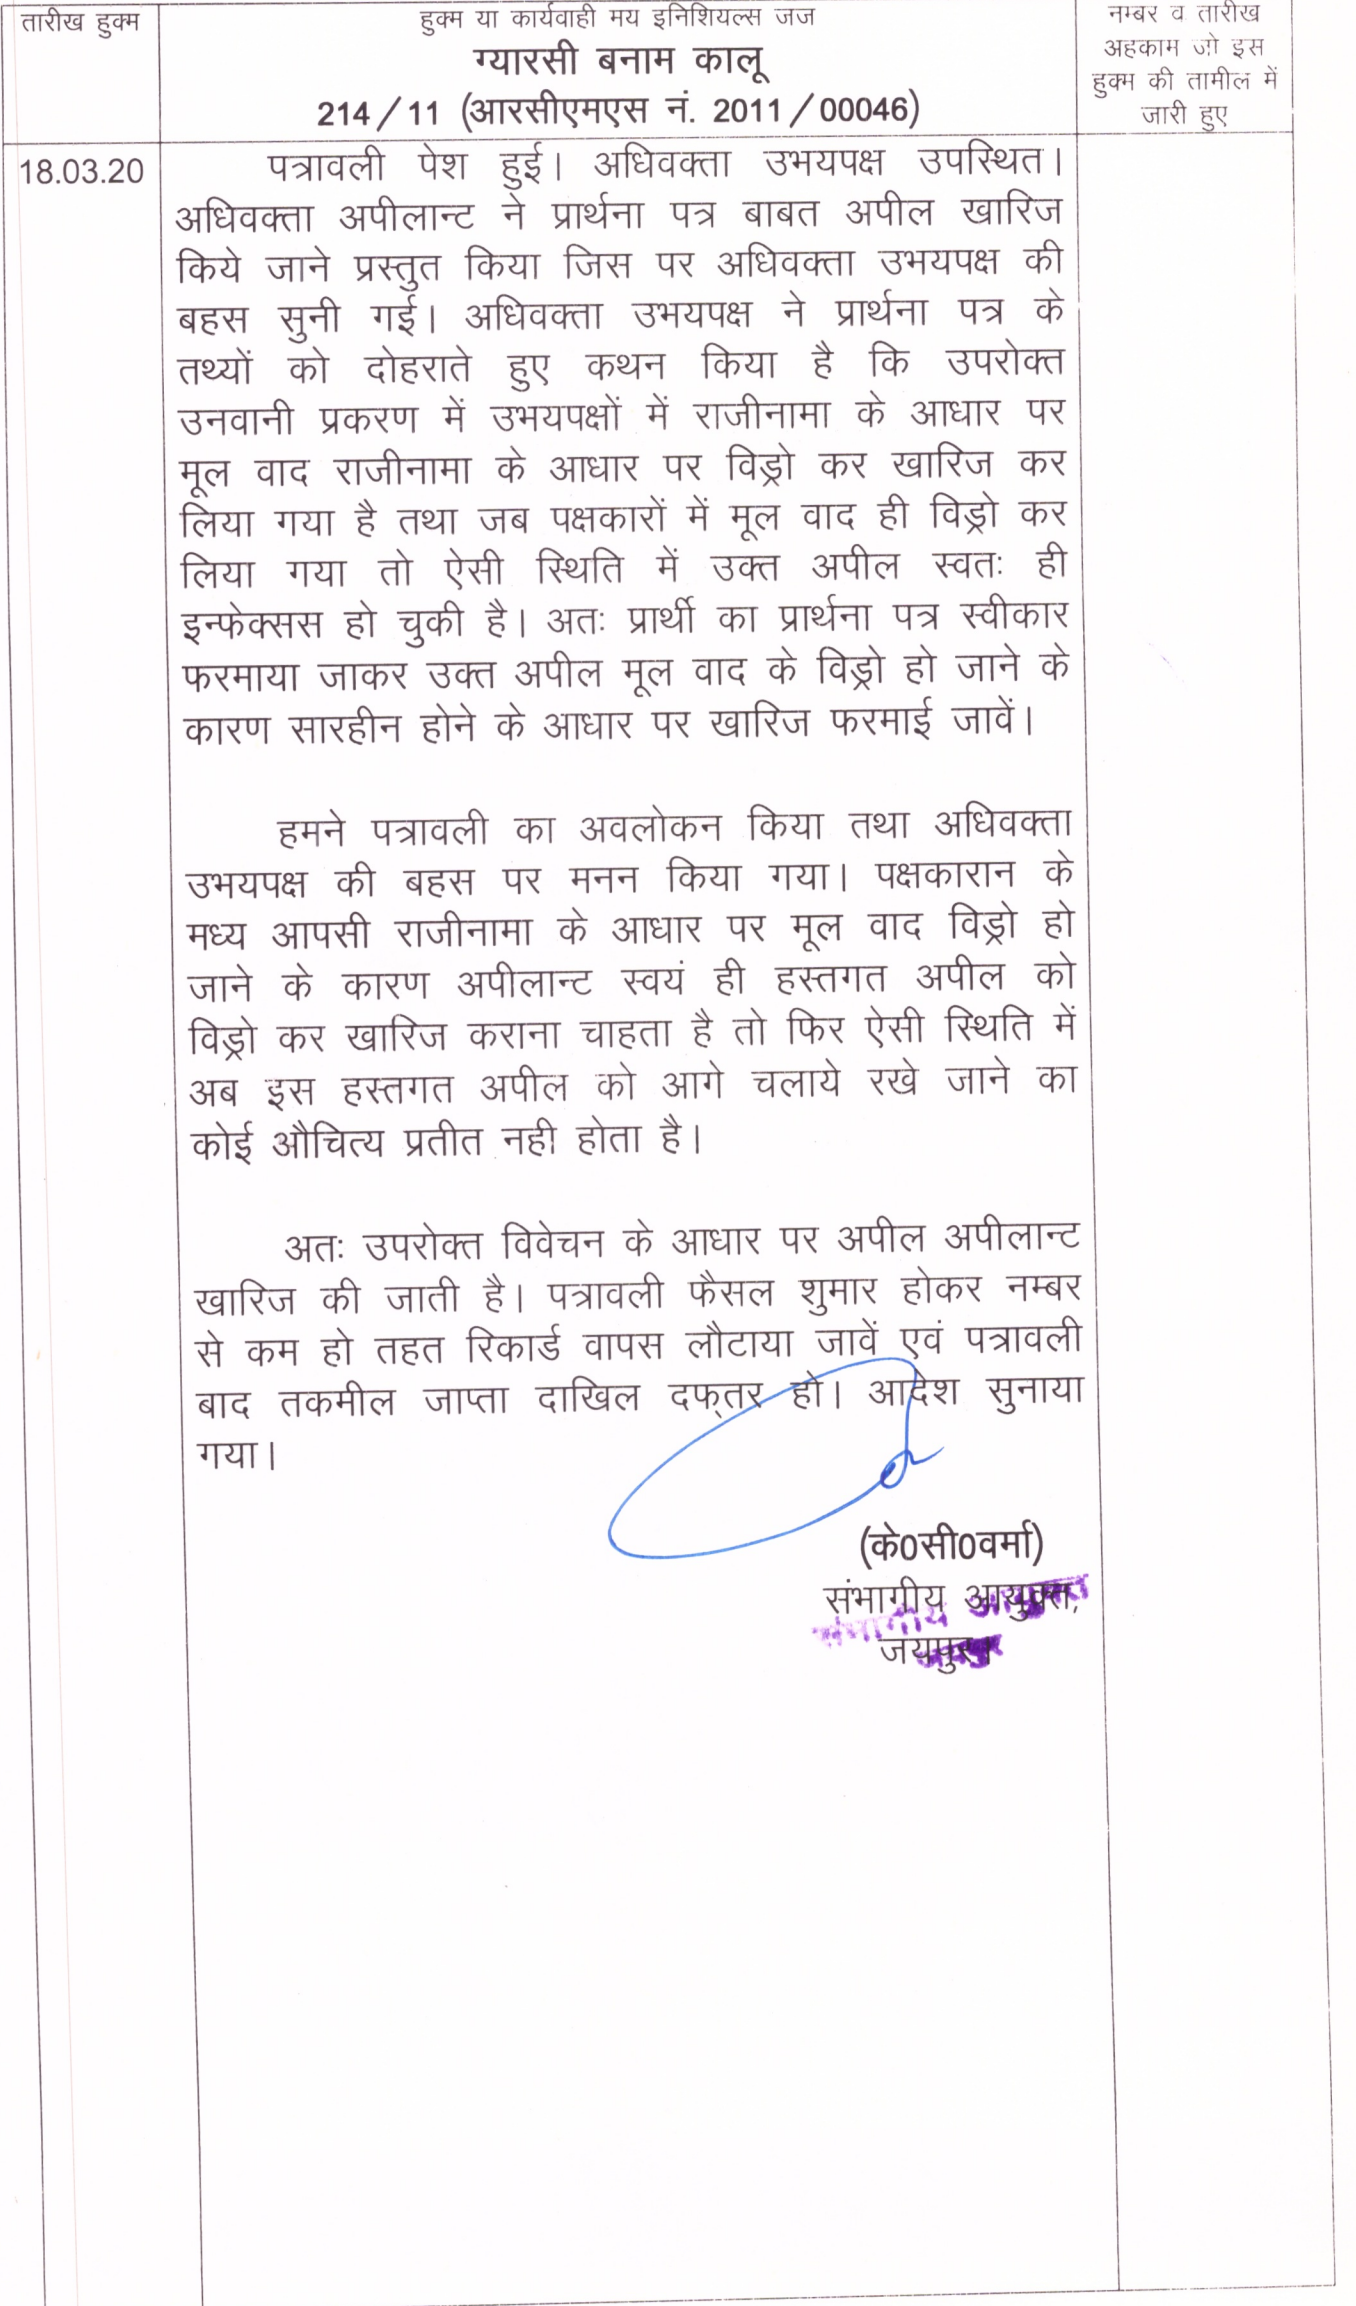 तारीख हुक्म
हुक्म या कार्यवाही मय इनिशियल्स जज
ग्यारसी बनाम कालू
214/11 (आरसीएमएस नं. 2011/00046)
नम्बर व तारीख
अहकाम जो इस
हुक्म की तामील में
जारी हुए
18.03.20
पत्रावली पेश हुई। अधिवक्ता उभयपक्ष उपस्थित।
अधिवक्ता अपीलान्ट ने प्रार्थना पत्र बाबत अपील खारिज
किये जाने प्रस्तुत किया जिस पर अधिवक्ता उभयपक्ष की
बहस सुनी गई। अधिवक्ता उभयपक्ष ने प्रार्थना पत्र के
तथ्यों को दोहराते हुए कथन किया है कि उपरोक्त
उनवानी प्रकरण में उभयपक्षों में राजीनामा के आधार पर
मूल वाद राजीनामा के आधार पर विड्रो कर खारिज कर
लिया गया है तथा जब पक्षकारों में मूल वाद ही विड्रो कर
लिया गया तो ऐसी स्थिति में उक्त अपील स्वतः ही
इन्फेक्सस हो चुकी है। अतः प्रार्थी का प्रार्थना पत्र स्वीकार
फरमाया जाकर उक्त अपील मूल वाद के विड्रो हो जाने के
कारण सारहीन होने के आधार पर खारिज फरमाई जावें।
हमने पत्रावली का अवलोकन किया तथा अधिवक्ता
उभयपक्ष की बहस पर मनन किया गया। पक्षकारान के
मध्य आपसी राजीनामा के आधार पर मूल वाद विड्रो हो
जाने के कारण अपीलान्ट स्वयं ही हस्तगत अपील को
विड्रो कर खारिज कराना चाहता है तो फिर ऐसी स्थिति में
अब इस हस्तगत अपील को आगे चलाये रखे जाने का
कोई औचित्य प्रतीत नही होता है।
अतः उपरोक्त विवेचन के आधार पर अपील अपीलान्ट
खारिज की जाती है। पत्रावली फैसल शुमार होकर नम्बर
से कम हो तहत रिकार्ड वापस लौटाया जावें एवं पत्रावली
बाद तकमील जाप्ता दाखिल दफ्तर हो। आदेश सुनाया
गया।
(के0सी0वर्मा)
संभागीय आयुक्त,
जयपुर।
संभागीय आयुक्त
जयपुर